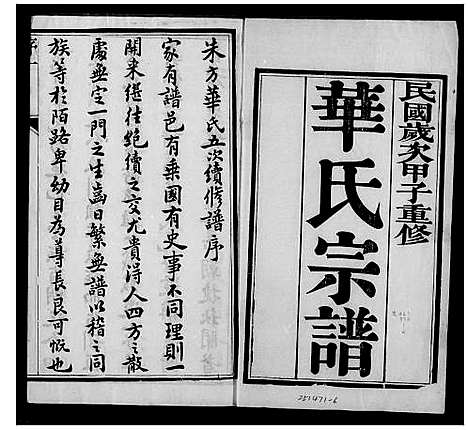 民國歲次甲子重修
華氏宗譜
251471-6
朱方華氏五次續修譜序
家有譜邑有乘國有史事不同理則一
開来継往絶續之交尤貴得人四方之散
處無定一門之生齒日繁無譜以稽之同
族等於陌路卑幼目為尊長良可慨也